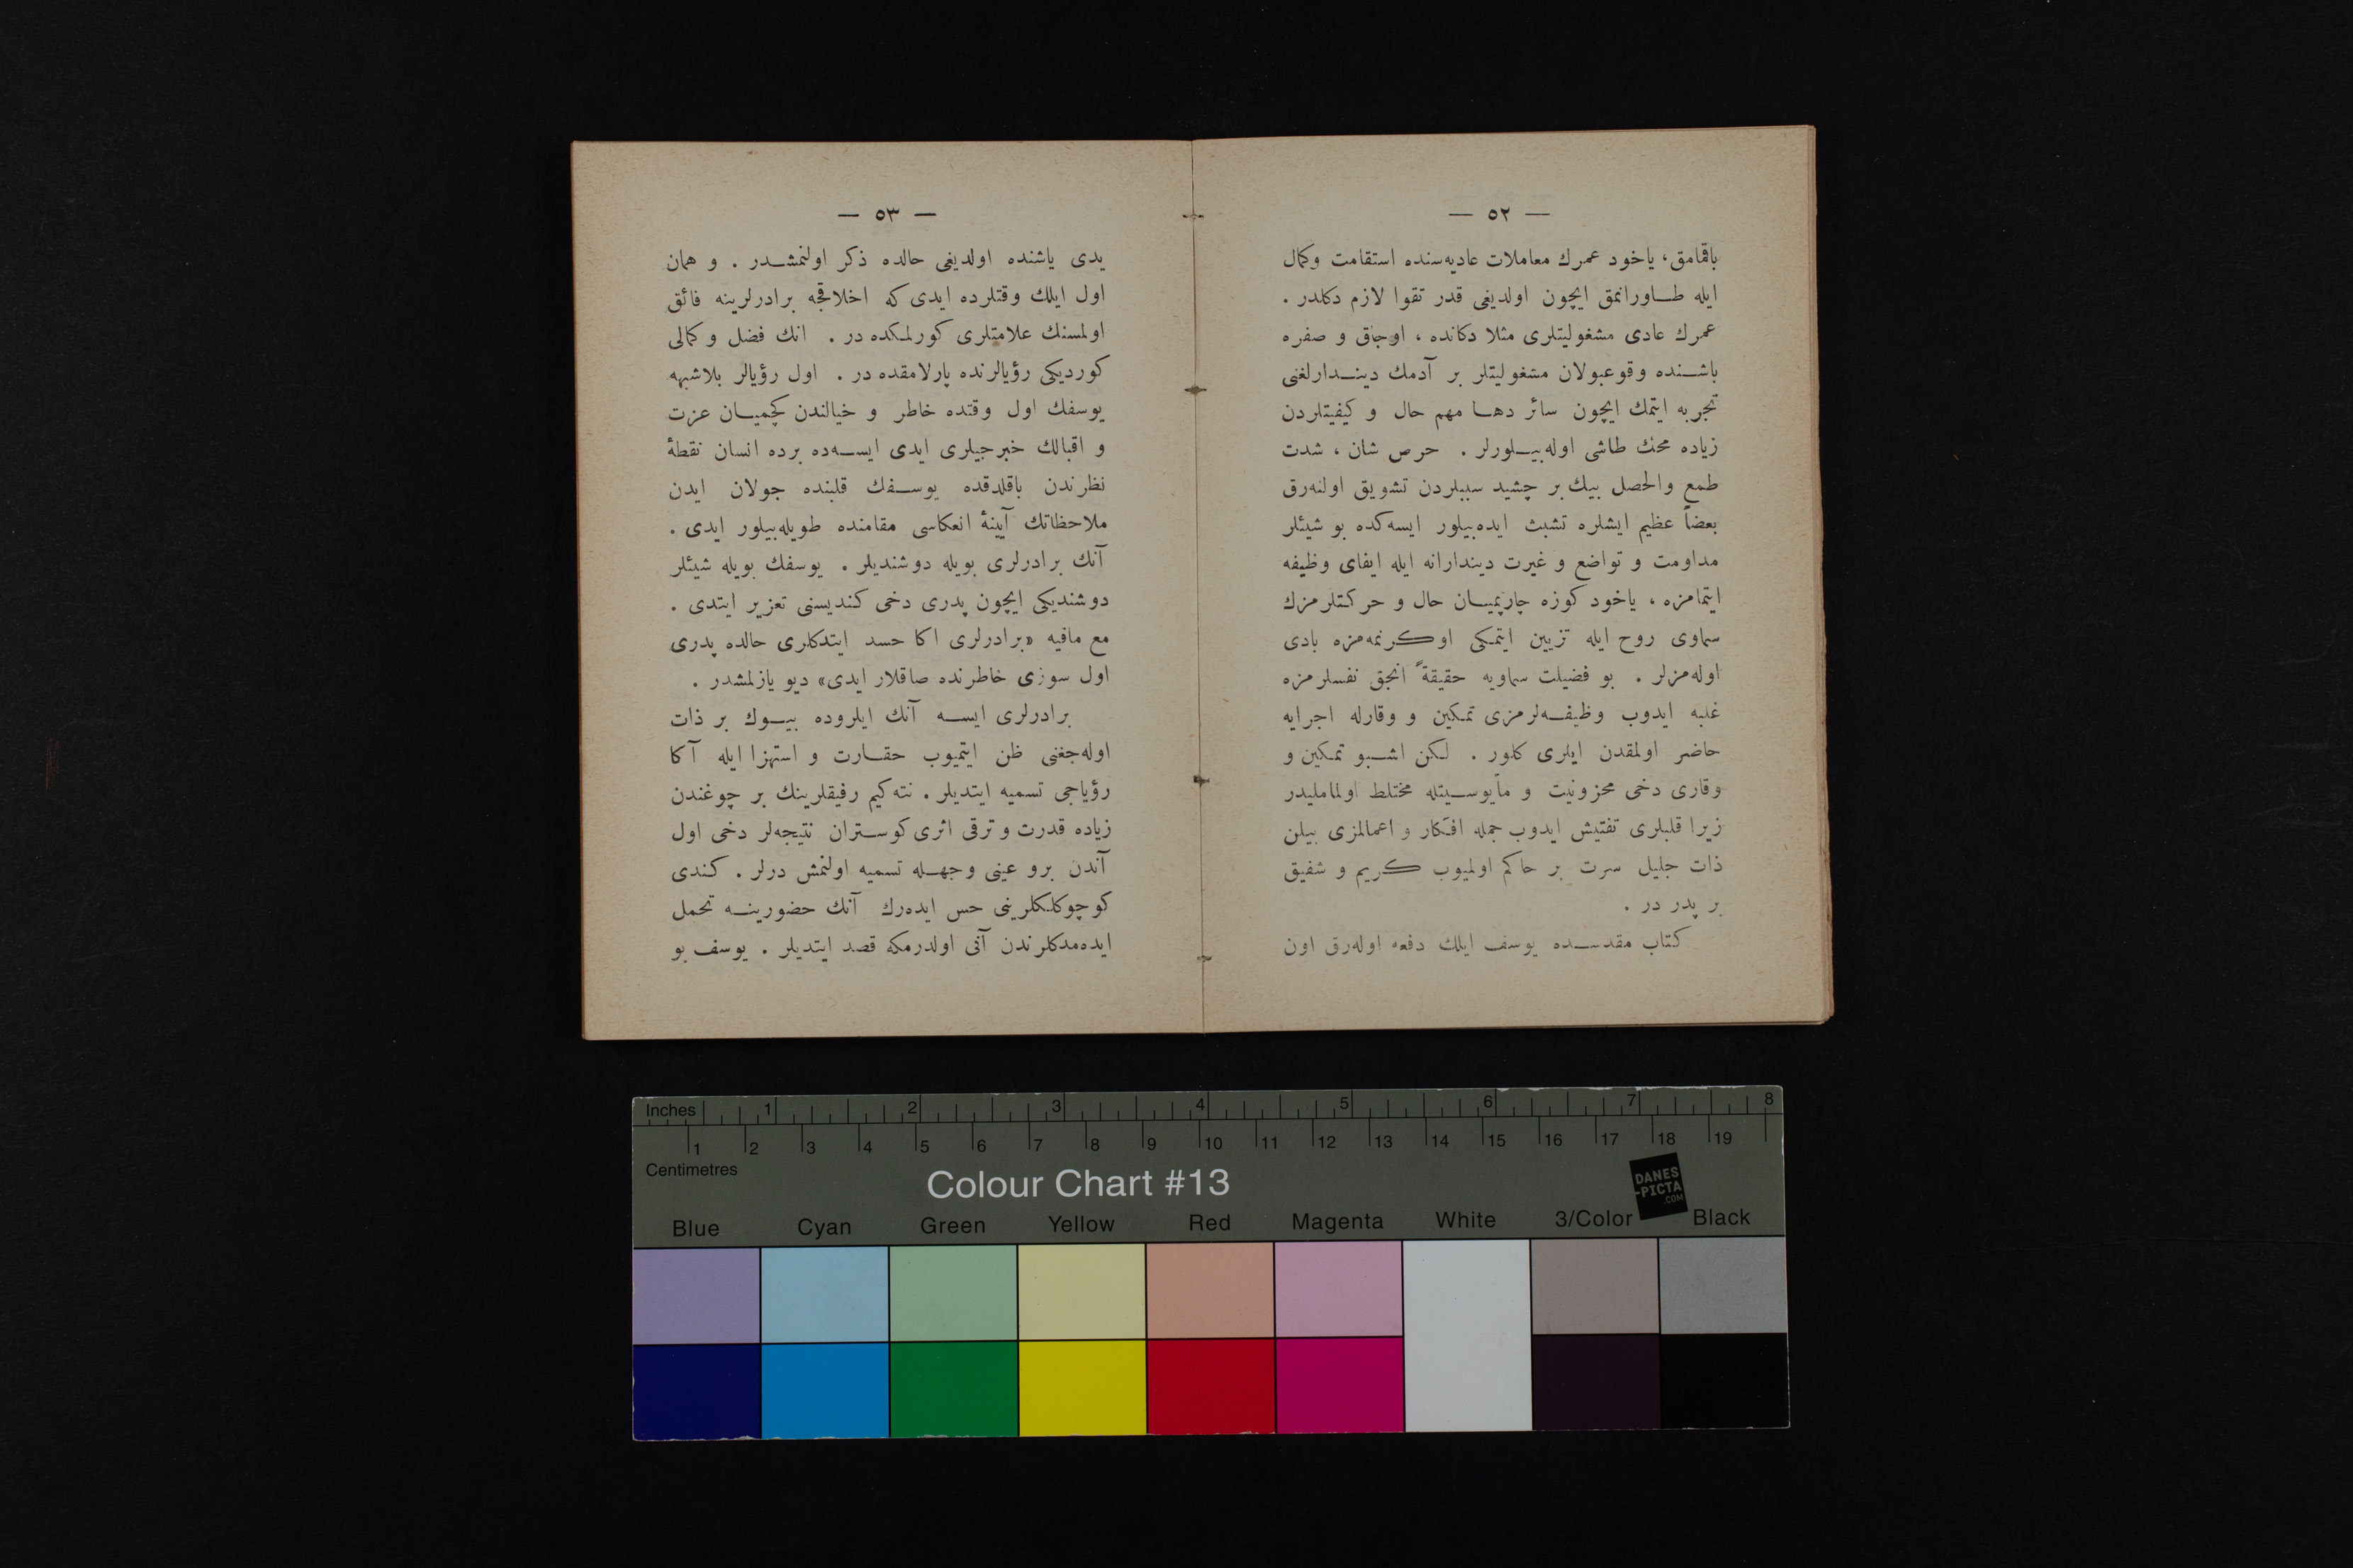 — ٥٢ —
باقمامق، ياخود عمرك معاملات عاديه‌سنده استقامت وكمال
ايله طاورانمق ايچون اولديغى قدر تقوا لازم دكلدر .
عمرك عادى مشغوليتلرى مثلا دكانده ، اوجاق و صفره
باشنده وقوعبولان مشغوليتلر بر آدمك دیندارلغنى
تجربه ايتمك ايچون سائر دها مهم حال و كيفيتلردن
زياده محك طاشى اوله‌بيلورلر . حرص شان ، شدت
طمع والحصل بيك بر چشيد سببلردن تشويق اولنه‌رق
بعضاً عظيم ايشلره تشبث ايده‌بيلور ايسه‌كده بو شيئلر
مداومت و تواضع و غيرت ديندارانه ايله ايفاى وظيفه
ايتمامزه ، ياخود كوزه چارپميان حال و حركتلرمزك
سماوى روح ايله تزيين ايتمكى اوكرنمه‌مزه بادى
اوله‌مزلر . بو فضيلت سماويه حقيقةً انجق نفسلرمزه
غلبه ايدوب وظيفه‌لرمزى تمكين و وقارله اجرايه
حاضر اولمقدن ايلرى كلور . لكن اشبو تمكين و
وقارى دخى محزونيت و مأيوسيتله مختلط اولماملیدر
زيرا قلبلرى تفتيش ايدوب جمله افكار و اعمالمزى بيلن
ذات جليل سرت بر حاكم اولميوب كريم و شفيق
بر پدر در .
كتاب مقدسده يوسف ايلك دفعه اوله‌رق اون
— ٥٣ —
يدى ياشنده اولديغى حالده ذكر اولنمشدر . و همان
اول ايلك وقتلرده ايدى كه اخلاقجه برادرلرينه فائق
اولمسنك علامتلرى كورلمكده در . انك فضل و كمالى
كورديكى رؤيالرنده پارلامقده در . اول رؤيالر بلاشبهه
يوسفك اول وقتده خاطر و خيالندن كچميان عزت
و اقبالك خبرجيلرى ايدى ايسه‌ده برده انسان نقطۀ
نظرندن باقلدقده يوسفك قلبنده جولان ايدن
ملاحظاتك آيينۀ انعكاسى مقامنده طويله‌بيلور ايدى .
آنك برادرلرى بويله دوشنديلر . يوسفك بويله شيئلر
دوشنديكى ايچون پدرى دخى كنديسنى تعزير ايتدى .
مع مافيه «برادرلرى اكا حسد ايتدكلرى حالده پدرى
اول سوزى خاطرنده صاقلار ايدى» ديو يازلمشدر .
برادرلرى ايسه آنك ايلروده بيوك بر ذات
اوله‌جغنى ظن ايتميوب حقارت و استهزا ايله آكا
رؤياجى تسميه ايتديلر . نته‌كيم رفيقلرينك بر چوغندن
زياده قدرت و ترقى اثرى كوستران نتيجه‌لر دخى اول
آندن برو عينى وجهله تسميه اولنمش درلر . كندى
كوچوكلكلرينى حس ايده‌رك آنك حضورينه تحمل
ايده‌مدكلرندن آنى اولدرمكه قصد ايتديلر . يوسف بو
Inches 1 2 3 4 5 6 7 8
1 2 3 4 5 6 7 8 9 10 11 12 13 14 15 16 17 18 19
Centimetres
Colour Chart #13
DANES
-PICTA
.COM
Blue Cyan Green Yellow Red Magenta White 3/Color Black